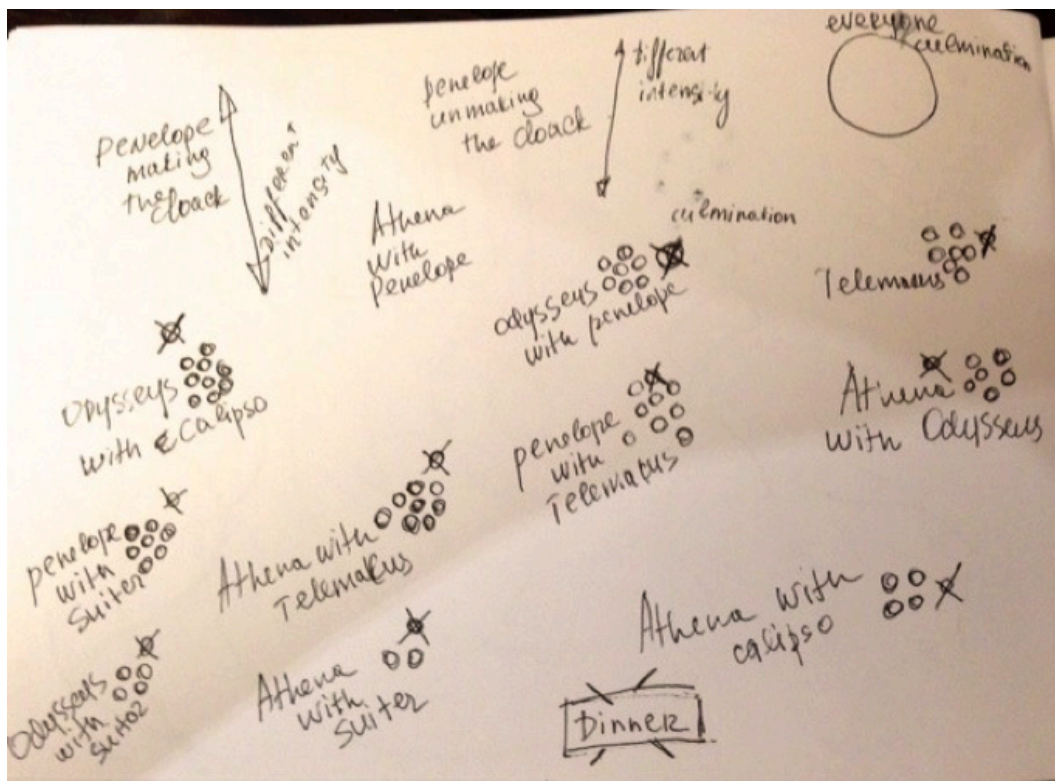 Penelope
making
the cloack
Different
intensity
penelope
unmaking
the cloack
different
intensity
everyone
culmination
Athena
with
Penelope
culmination
Odysseys
with penelope
Telemacus
Odysseys
with Calipso
penelope
with
Telemacus
Athena
with Odysseus
penelope
with
Suiter
Athena with
Telemakus
Athena with
calipso
Odysseus
with
Athena
with
Suiter
Dinner